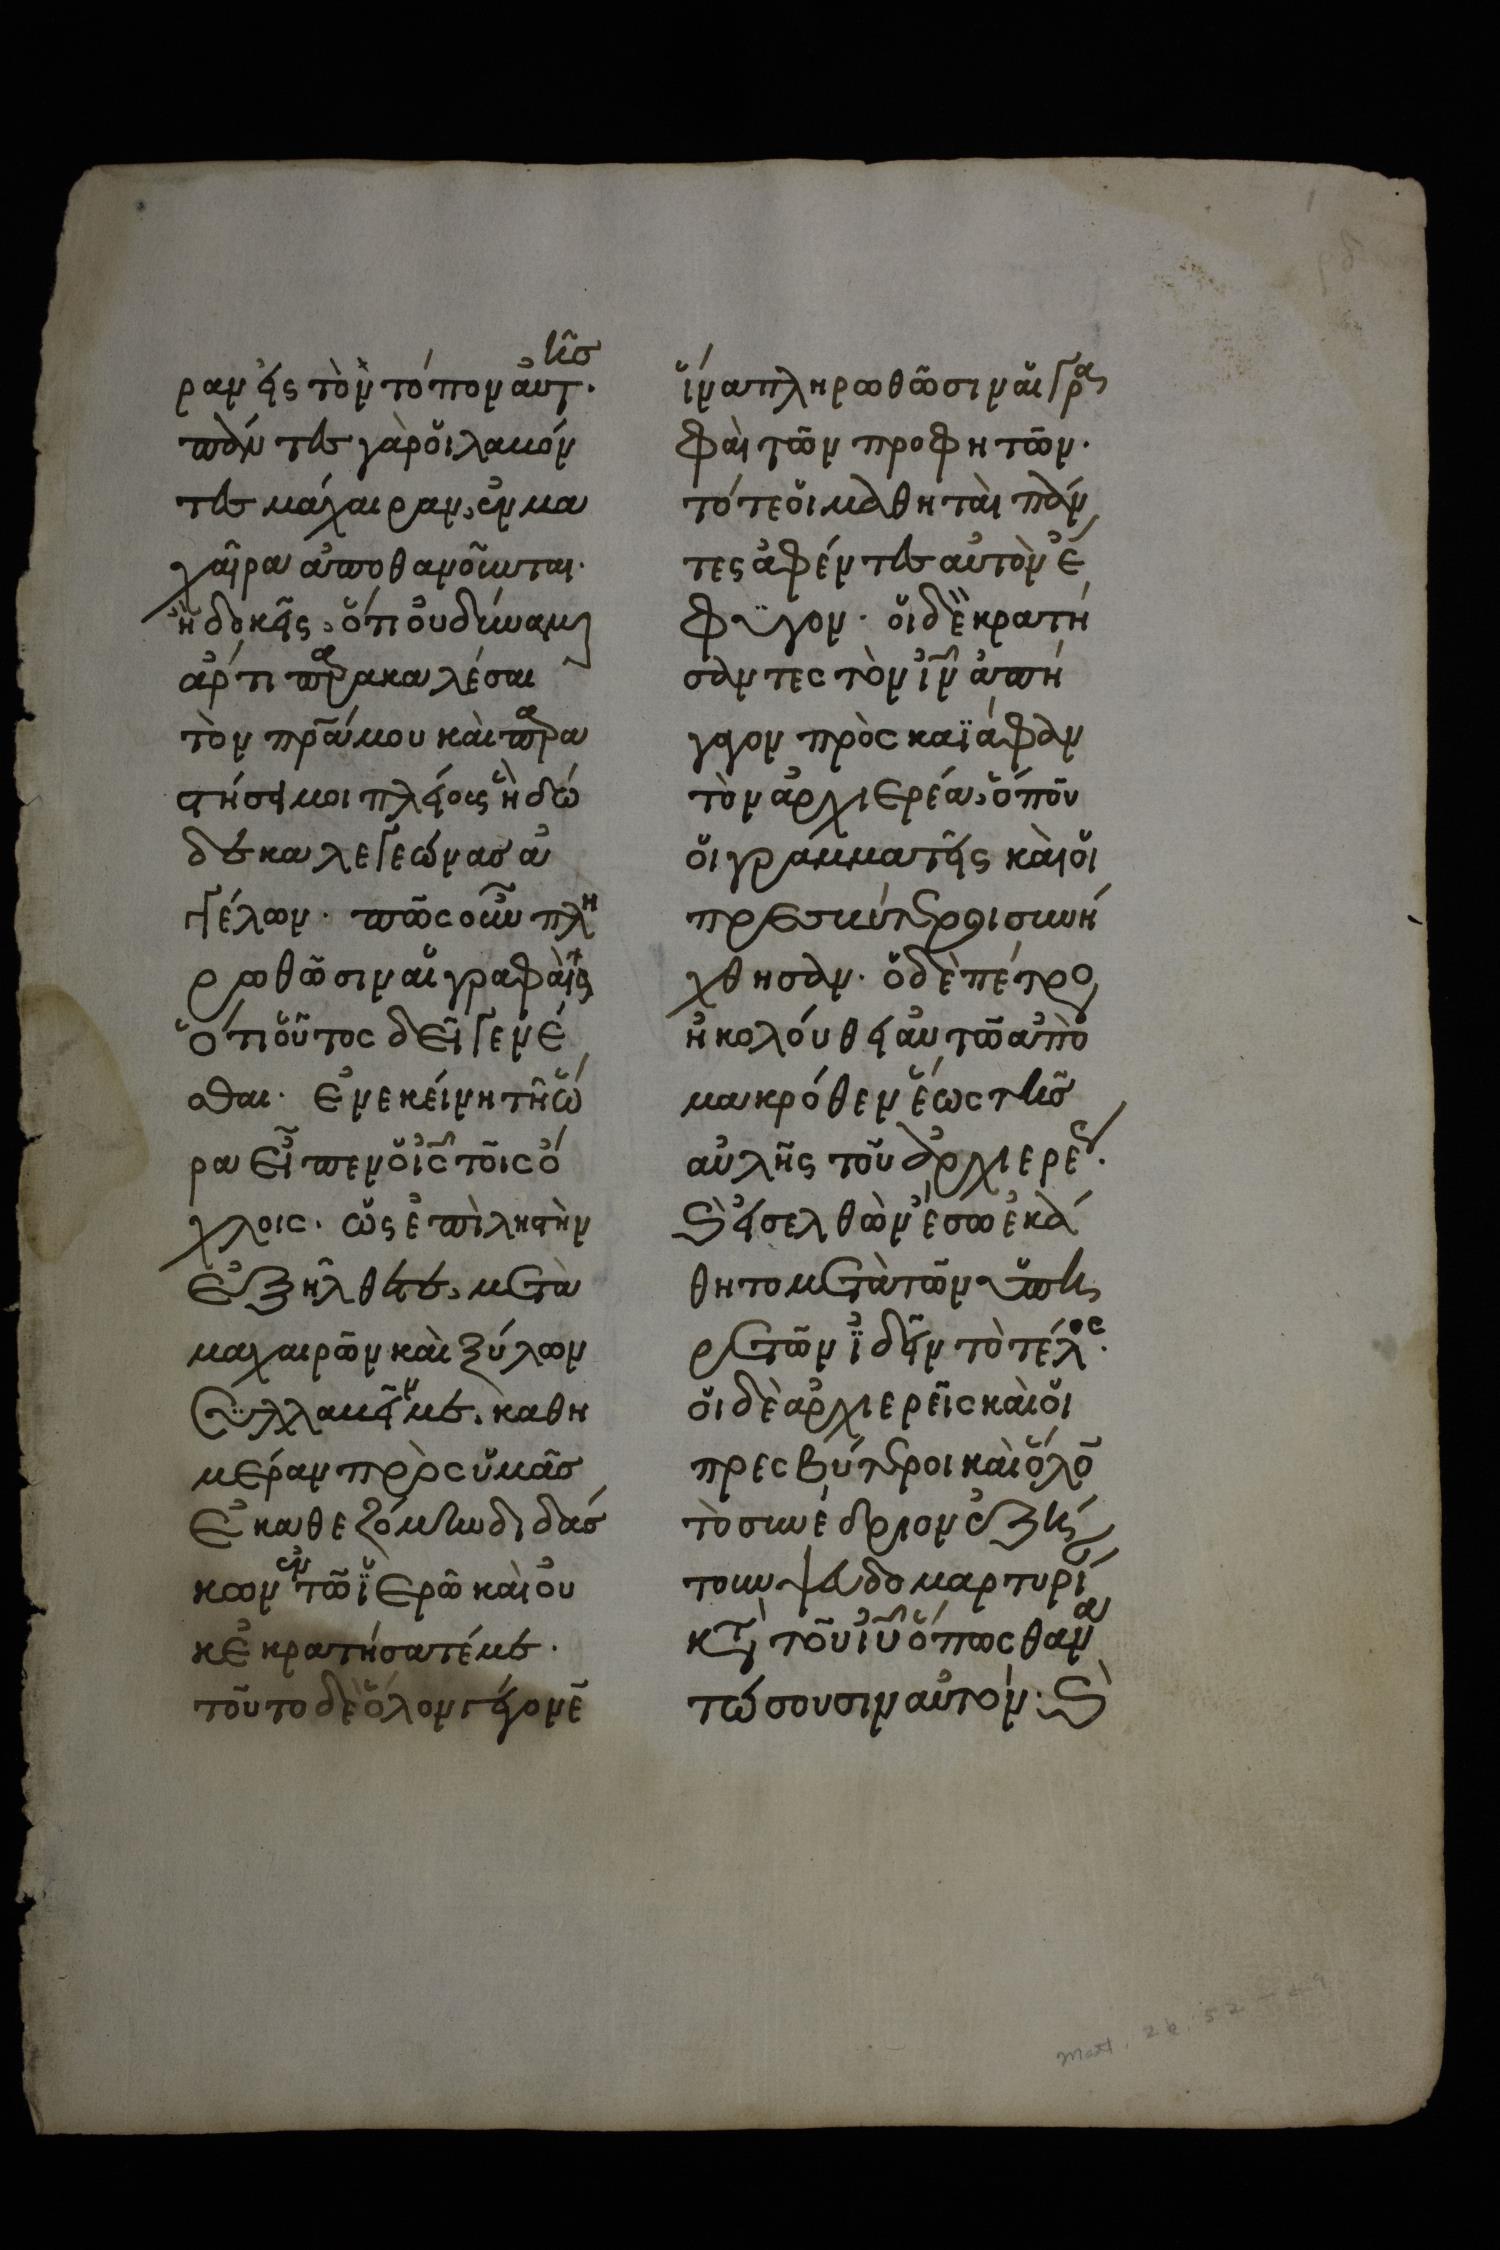 ραν εἰς τὸν τόπον αὐτῆς·
πάντες γὰρ οἱ λαβόν
τες μάχαιραν, ἐν μα
χαῖρα ἀποθανοῦνται·
ἢ δοκεῖς, ὅτι οὐ δύναμαι
ἄρτι παρακαλέσαι
τὸν πρα μου καὶ παρα
στήσει μοι πλείους ἢ δώ
δεκα λεγεώνας ἀγ
γέλων· πῶς οὖν πλη
ρωθῶσιν αἱ γραφαὶ
ὅτι οὗτος δεῖ γενέ
σθαι· ἐν ἐκείνη τῆ ὥ
ρα εἶπεν ὁ ις τοῖς ὄ
χλοις· ὡς ἐπὶ ληστὴν
ἐξήλθετε, μετὰ
μαχαιρῶν καὶ ξύλων
συλλαβεῖν με. καθη
μέραν πρὸς ὑμᾶσ
ἐκαθεζόμην διδάσ
κων ἐν τῶ ἱερῶ καὶ οὐ
κ ἐκρατήσατέ με·
τοῦτο δὲ ὅλον γέγονε
ἵνα πληρωθῶσιν αἱ γρα
φαὶ τῶν προφητῶν·
τότε οἱ μαθηταὶ πάν
τες ἀφέντες αὐτὸν ἔ
φυγον· οἱ δὲ κρατή
σαντες τὸν ιν ἀπή
γαγον πρὸς καϊάφαν
τὸν ἀρχιερέα, ὅπου
οἱ γραμματεῖς καὶ οἱ
πρεσβύτεροι συνή
χθησαν· ὁ δὲ πέτρος
ἠκολούθει αὐτῶ ἀπὸ
μακρόθεν ἕως τῆσ
αὐλῆς τοῦ ἀρχιερέως·
καὶ εἰσελθὼν ἔσω ἐκά
θητο μετὰ τῶν ὑπη
ρετῶν ἰδεῖν τὸ τέλος·
οἱ δὲ ἀρχιερεῖς καὶ οἱ
πρεσβύτεροι καὶ ὅλο
τὸ συνέδριον ἐζή
τουν ψευδομαρτυρί
αν κατὰ τοῦ ιυ ὅπως θανα
τώσουσιν αὐτόν· καὶ
Matt. 26, 52-59